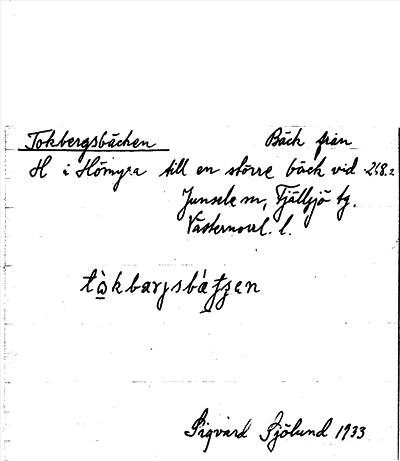 Tokbergsbäcken Bäck från
H i Hömyra till en större bäck vid 248.2
Junsele sn, Fjällsjö tg.
Västernorrl. l.
tò̱kbærjsbátʃen
Sigvard Sjölund 1933